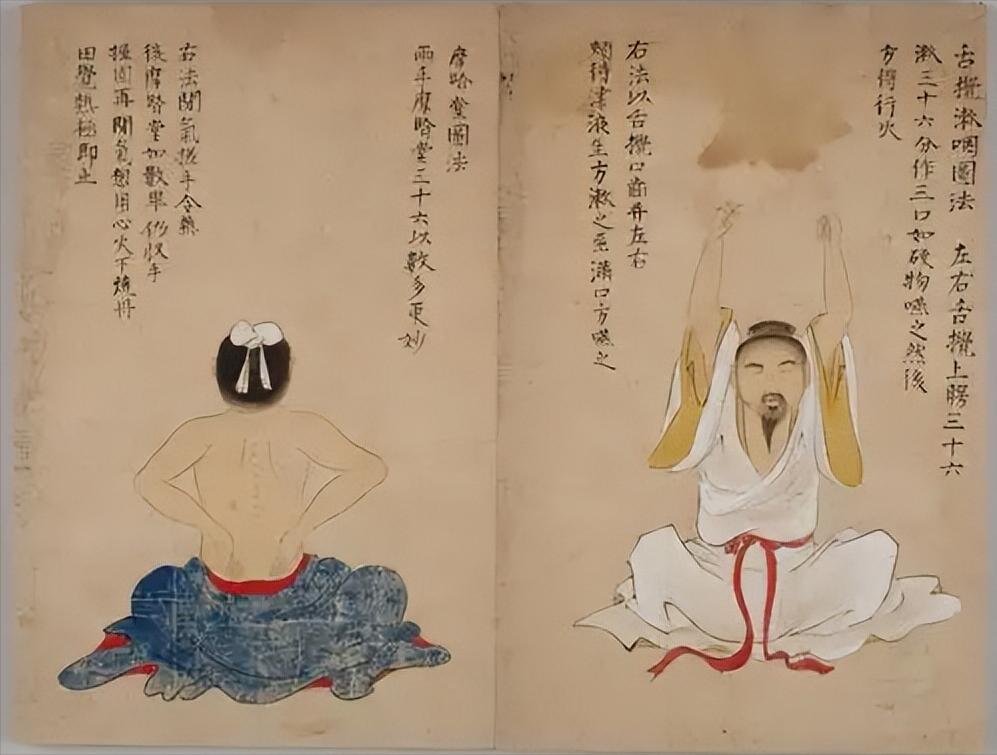 舌攪漱咽圖法 左右舌攪上腭三十六
漱三十六分作三口如硬物嚥之然後
方得行火
右法以舌攪口齒并左右
頰待津液生方漱之至滿口方嚥之
摩腎堂圖法
兩手摩腎堂三十六以數多更妙
右法閉氣搓手令熱
後摩腎堂如數畢仍收手
握固再閉氣想用心火下燒丹
田覺熱極即止